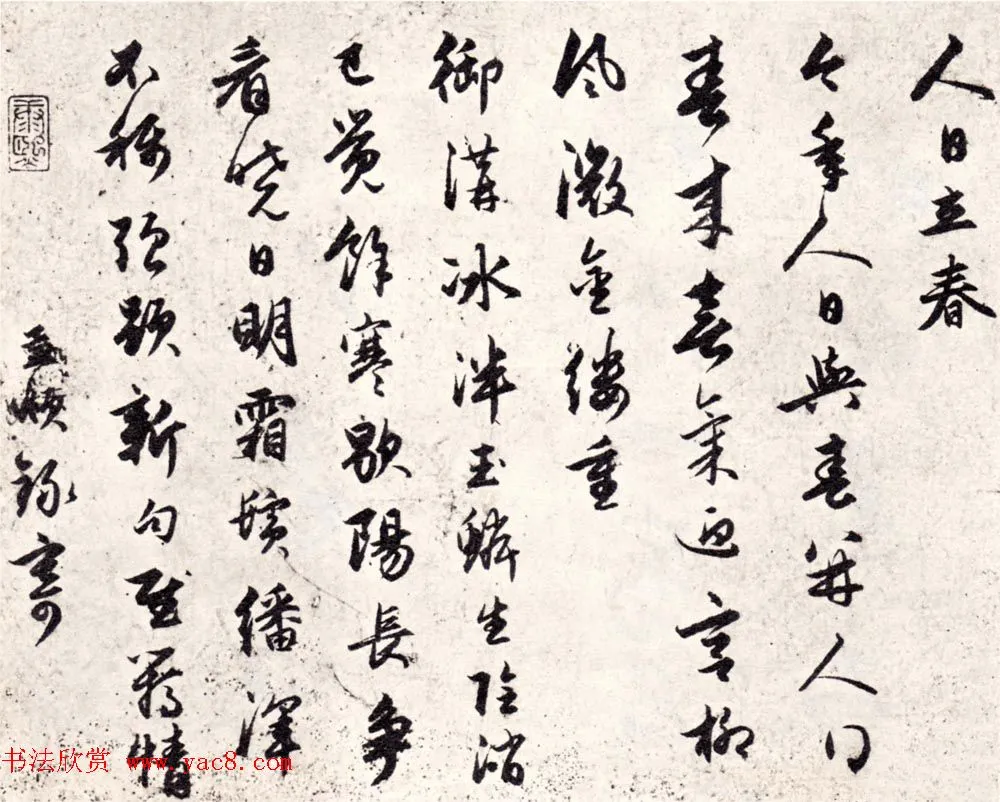 人日立春
今年人日與春并人得
春來喜氣迎宮柳
風微金縷重
御溝冰泮玉鱗生陰消
已覺餘寒歇陽長爭
看曉日明霜鬢繙渾
不稱強題新句慰羈情
孟頫錄寄
书法欣赏 www.yac8.com